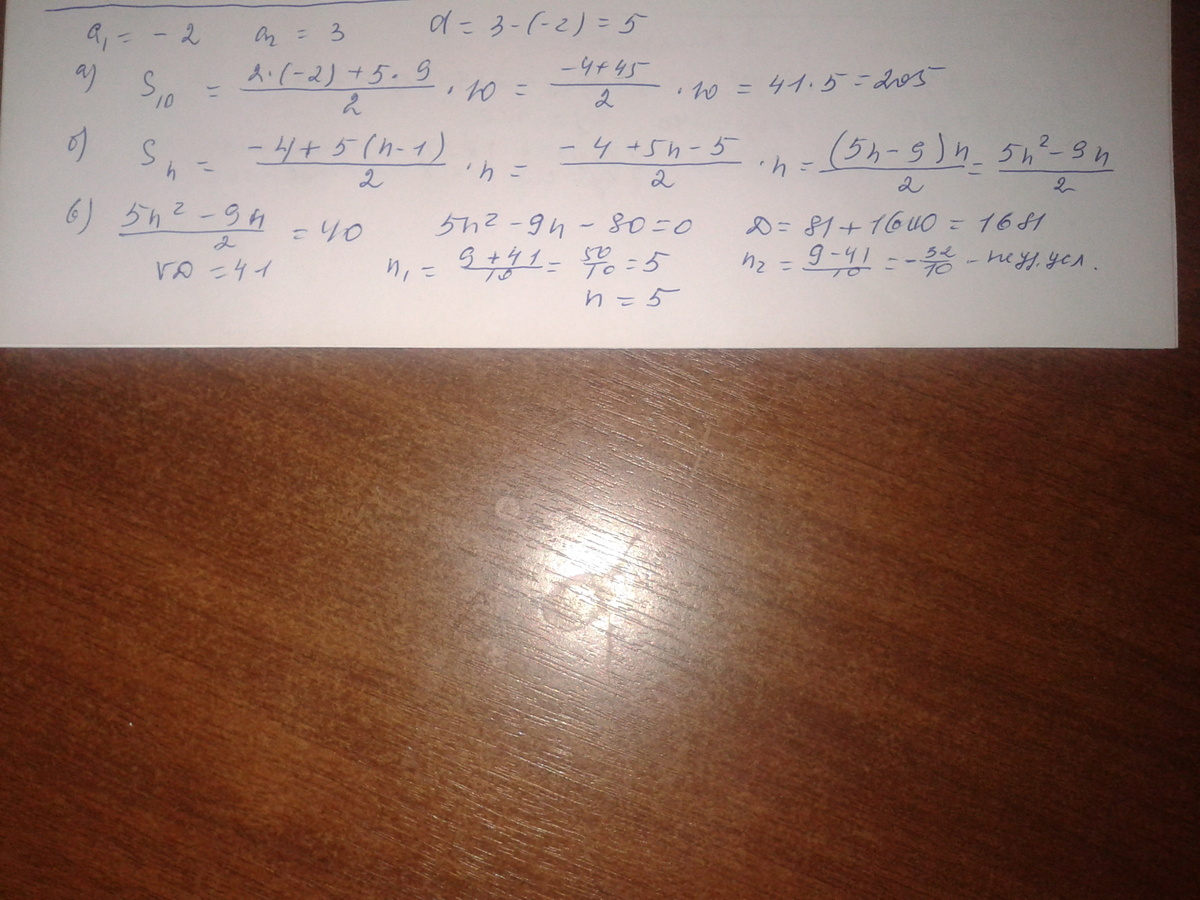 a₁ = -2 a₂ = 3 d = 3-(-2) = 5
а) S₁₀ = (2·(-2)+5·9)/2 ·10 = (-4+45)/2 ·10 = 41·5 = 205
б) Sₙ = (-4+5(n-1))/2 ·n = (-4+5n-5)/2 ·n = ((5n-9)n)/2 = (5n²-9n)/2
в) (5n²-9n)/2 = 40 5n²-9n-80=0 D = 81+1600 = 1681
√D = 41 n₁ = (9+41)/10 = 50/10 = 5 n₂ = (9-41)/10 = -32/10 - не уд. усл.
n = 5